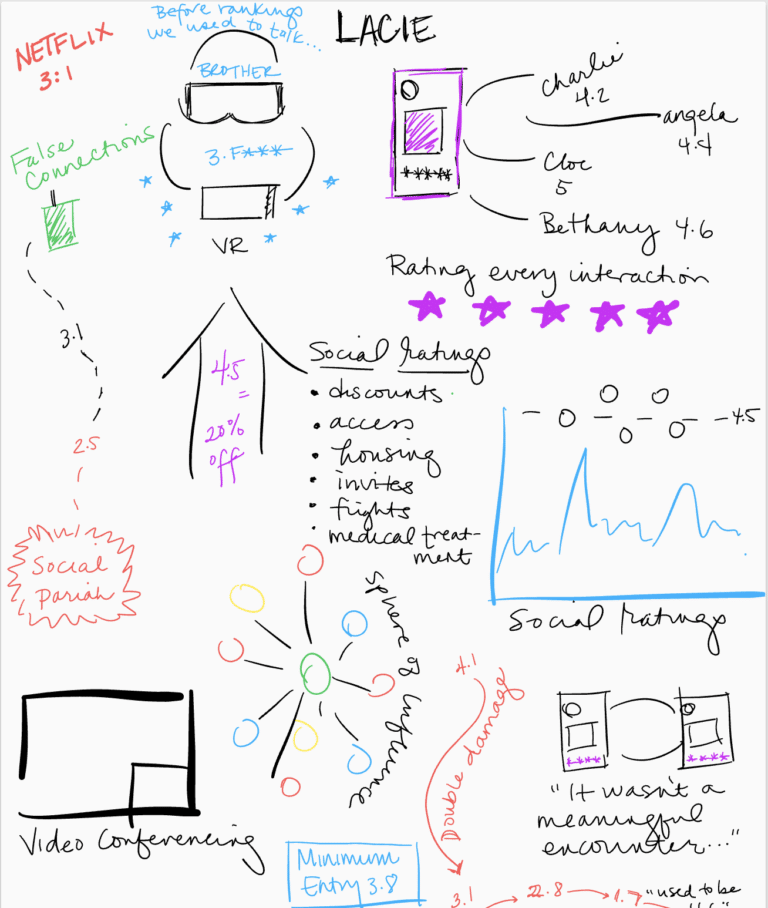 NETFLIX
3:1
Before rankings
we used to talk...
LACIE
BROTHER
3. F***
VR
False
Connections
3.1
2.5
Social
Pariah
Charlie
4.2
angela
Cloe
5
Bethany 4.6
Rating every interaction
4.5
=
20%
off
Social ratings
• discounts
• access
• housing
• invites
• flights
• medical treat-
ment
4.5
Social ratings
Sphere of influence
Video Conferencing
4.1
Double damage
Minimum
Entry 3.8
3.1
22.8
1.7
"It wasn't a
meaningful
encounter..."
"used to be